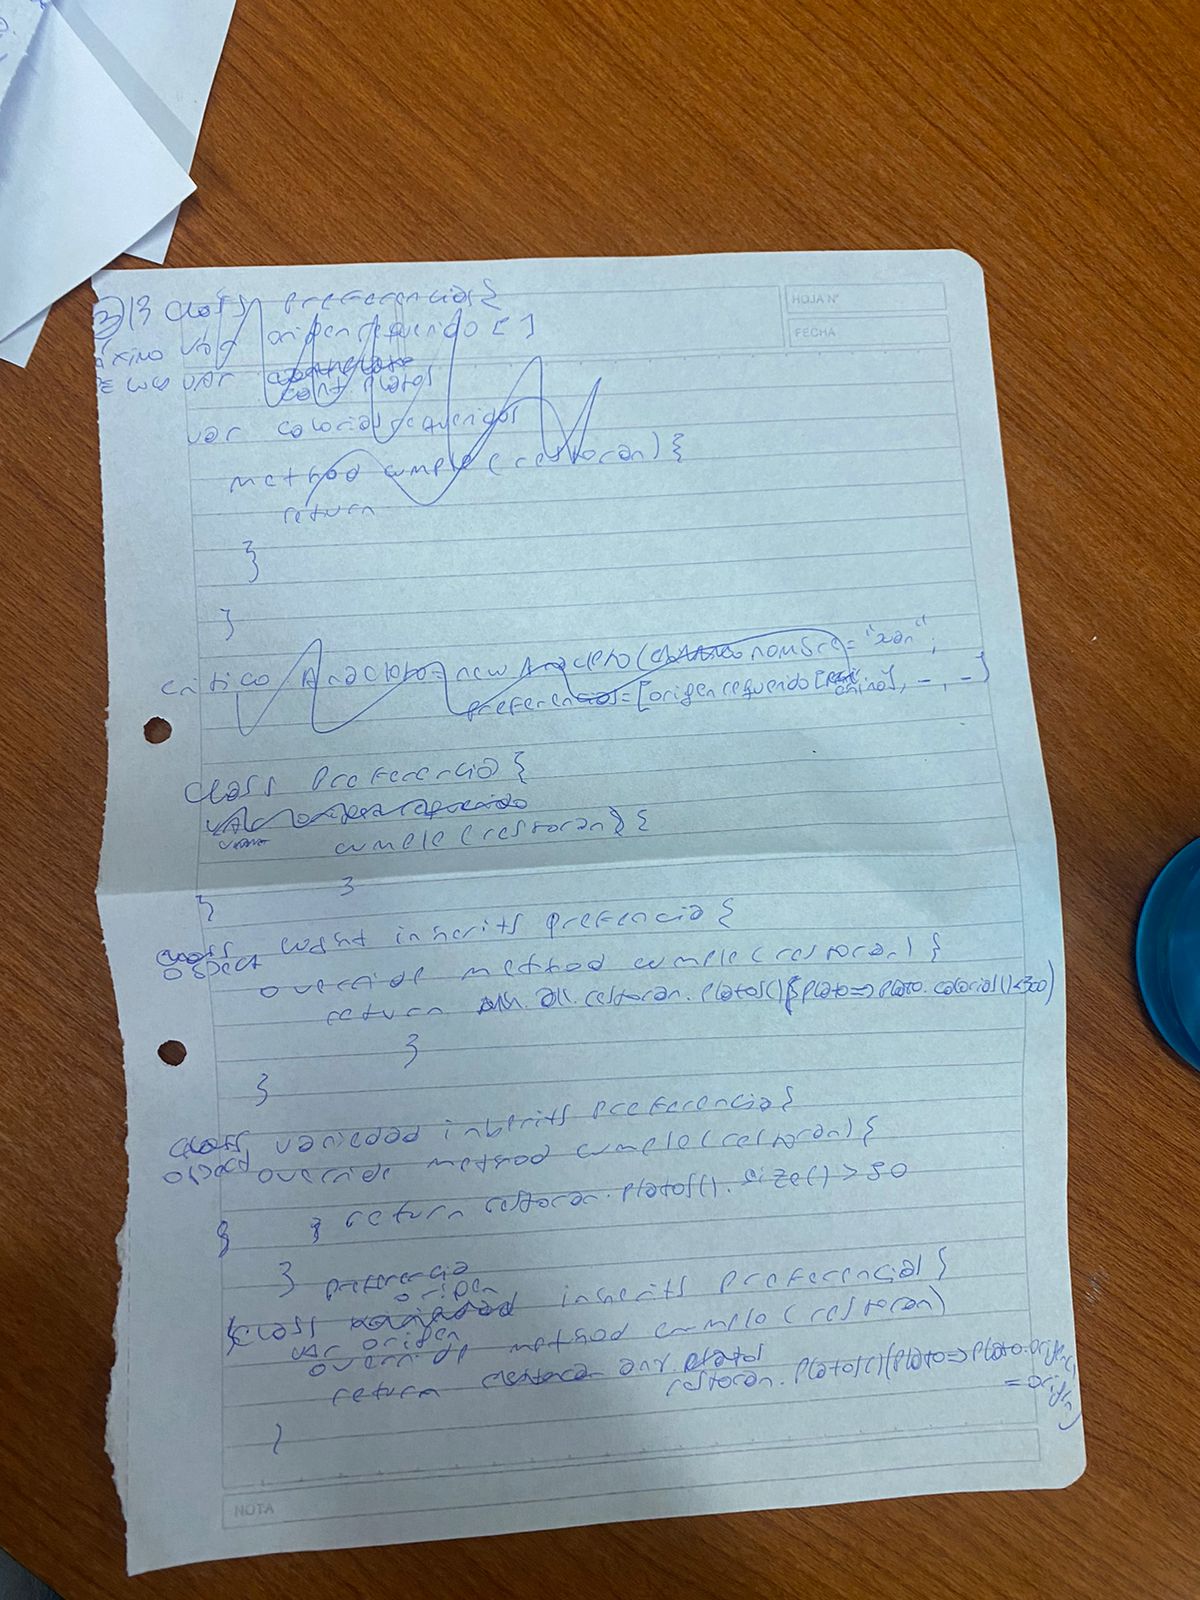 HOJA Nº
FECHA
3)B class preferencias{
var origenrequerido []
var
cant. platos
var caloriasrequeridas
method cumple (restoran) {
return
}
}
critico Anacleto = new Anacleto ( nombre = "xan",
preferencias = [origenrequerido [ ], -, -]
class Preferencia {
var origen requerido
cumple (restoran) {
}
}
class
object light inherits prefencia {
override method cumple (restoran) {
return all. restoran. platos() {plato => plato. calorias() < 300)
}
}
class variedad inherits preferencia {
object
override method cumple (restoran) {
return restoran. platos(). size() > 50
}
}
}
preferencia
origen
class variedad inherits preferencial {
var origen
override method cumple (restoran)
return restoran any. platos
restoran. platos() (plato => plato. origen
= origen)
}
NOTA